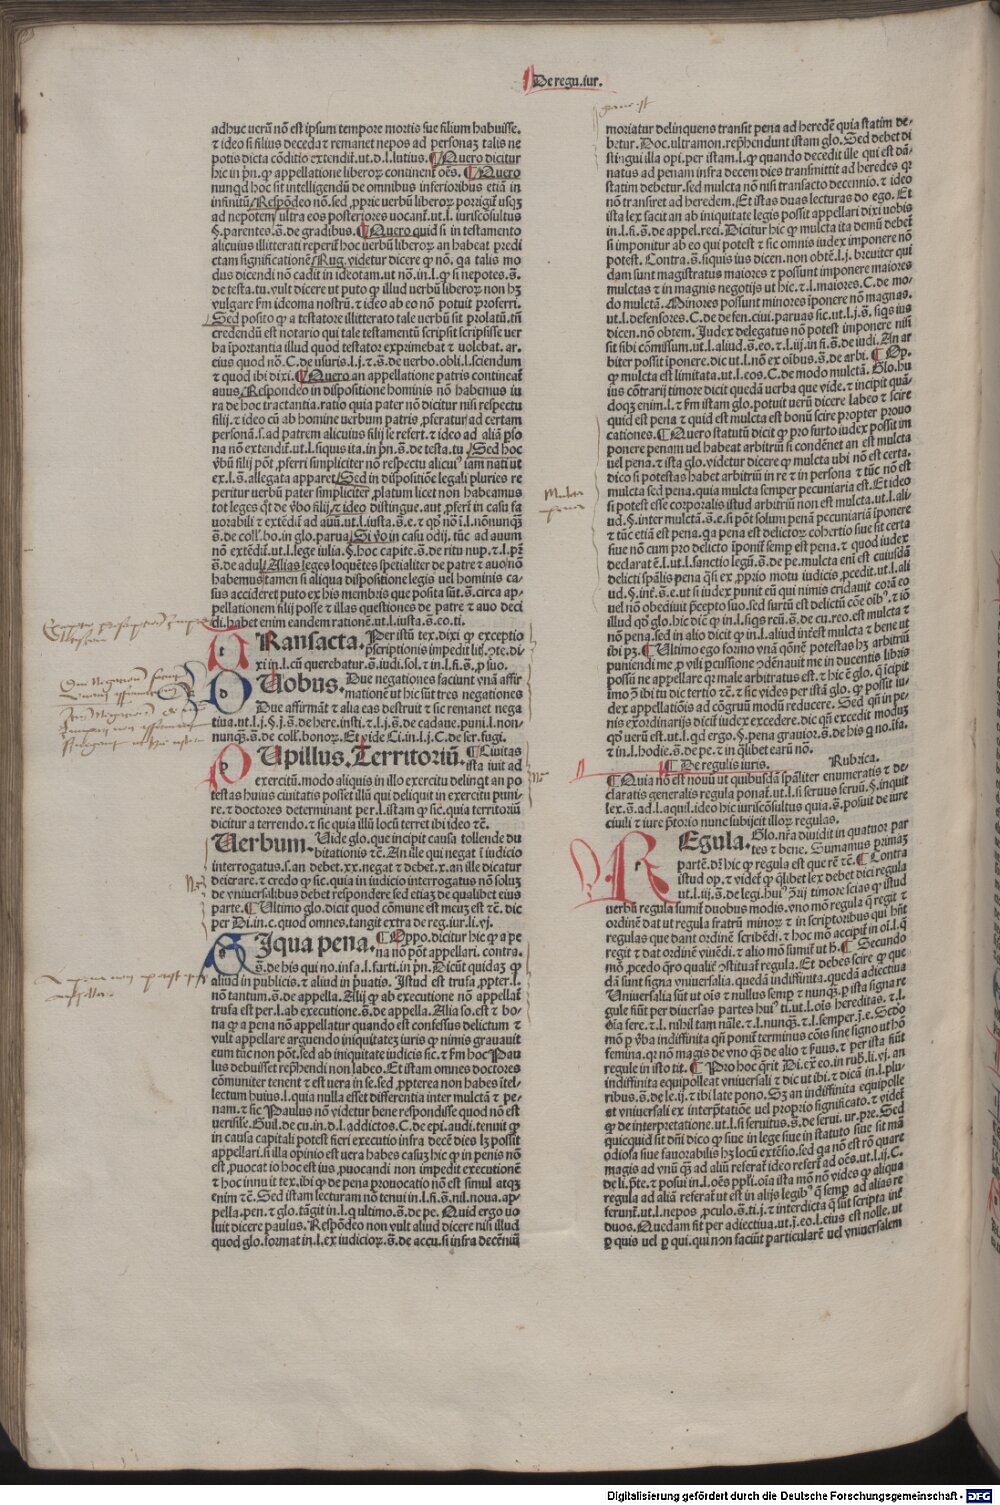 De regu. iur.
adhuc uerũ nõ est ipsum tempore mortis sue filium habuisse.
⁊ ideo si filius decedat remanet nepos ad personaʒ talis ne
potis dicta cõditio extendit̃.ut.d.l.lutius. ¶ Quero dicitur
hic in p̃n. ꝙ appellatione liberoꝝ continent̃ oẽs. ¶ Quero
nunqd hoc sit intelligendũ de omnibus inferioribus etiã in
infinitũ Respõdeo nõ. sed ꝓprie uerbũ liberoꝝ porrigit̃ usqʒ
ad nepotem ultra eos posteriores uocant̃.ut.l. iurisconsultus
§.parentes.s̃.de gradibus. ¶ Quero quid si in testamento
alicuius illitterati reperit̃ hoc uerbũ liberoꝝ an habeat predi
ctam significationẽ Rug. videtur dicere ꝙ nõ. qa talis mo
dus dicendi nõ cadit in ideotam.ut nõ.in.l.ꝙ si nepotes.s̃.
de testa.tu. vult dicere ut puto ꝙ illud uerbũ liberoꝝ non hʒ
vulgare fm ideoma nostrũ. ⁊ ideo ab eo nõ potuit proferri.
Sed posito ꝙ a testatore illitterato tale uerbũ sit prolatũ.tñ
credendũ est notario qui tale testamentũ scripsit scripsisse uer
ba ĩportantia illud quod testator exprimebat ⁊ uolebat. ar.
eius quod nõ.C.de usuris.l.j.⁊.s̃.de uerbo.obli.l.sciendum
⁊ quod ibi dixi. ¶ Quero an appellatione patris contineat̃
auus Respondeo in dispositione hominis nõ habemus iu
ra de hoc tractantia. ratio quia pater nõ dicitur nisi respectu
filij.⁊ ideo cũ ab homine uerbum patris ꝓferatur ad certam
personã.s.ad patrem alicuius filij se refert. ⁊ ideo ad aliã pso
na nõ extendit̃.ut.l.siquis ita.in p̃n.s̃.de testa.tu Sed hoc
ỽbũ filij põt ꝓferri simpliciter nõ respectu alicuiꝰ iam nati ut
ex.l.s̃.allegata apparet Sed in dispositiõe legali pluries re
peritur uerbũ pater simpliciter ꝓlatum licet non habeamus
tot leges q̃t de ỽbo filij ⁊ ideo distingue.aut ꝓfert̃ in casu fa
uorabili ⁊ extẽdit̃ ad auũ.ut.l.iusta.s̃.e.⁊ qđ nõ ĩ.l.nõnunqʒ
s̃.de coll̃.bo.in glo.parua Si ỽo in casu odij. tũc ad auum
nõ extẽdit̃.ut.l.lege iulia.§.hoc capite.s̃.de ritu nup.⁊.l.pʒ
s̃.de adul Alias leges loquẽtes spetialiter de patre ⁊ auo nõ
habemus tamen si aliqua dispositione legis uel hominis ca-
sus accideret puto ex his membris que posita sũt.s̃.circa ap-
pellationem filij posse ⁊ illas questiones de patre ⁊ auo deci
di.habet enim eandem rationẽ.ut.l.iusta.s̃.eo.ti.
TRansacta. Per istũ tex.dixi ꝙ exceptio
pscriptionis impedit lit̃.ↄte.di-
xi in.l.cũ querebatur.s̃.iudi.sol.⁊ in.l.fi.s̃.p suo.
DUobus. Due negationes faciunt vnã affir
mationẽ ut hic sũt tres negationes
Due affirmãt ⁊ alia eas destruit ⁊ sic remanet nega
tiua.ut.l.j.§.j.s̃.de here.insti.⁊.l.j.s̃.de cadaue.puni.l.non-
nunqʒ.s̃.de coll̃.bonoꝝ. Et vide Ci.in.l.j.C.de ser.fugi.
PUpillus. Territoriũ. ¶ Ciuitas
ista iuit ad
exercitũ.modo aliquis in illo exercitu delinqt an po
testas huius ciuitatis posset illũ qui deliquit in exercitu puni-
re.⁊ doctores determinant per.l.istam ꝙ sic.quia territoriũ
dicitur a terrendo.⁊ sic quia illũ locũ terret ibi ideo ⁊ẽ.
Uerbum. Uide glo.que incipit causa tollende du
bitationis ⁊ẽ. An ille qui negat ĩ iudicio
interrogatus.s.an debet.xx.negat ⁊ debet.x.an ille dicatur
deierare.⁊ credo ꝙ sic.quia in iudicio interrogatus nõ soluʒ
de vniuersalibus debet respondere sed etiaʒ de qualibet eius
parte. ¶ Ultimo glo.dicit quod cõmune est meuʒ est ⁊ẽ. dic
per Di.in.c.quod omnes.tangit extra de reg.iur.li.vj.
SIqua pena. ¶ Oppo.dicitur hic ꝙ a pe
na nõ põt appellari.contra.
s̃.de his qui no.infa.l.furti.in p̃n. Dicũt quidaʒ ꝙ
aliud in publicis.⁊ aliud in p̃uatis. Istud est trufa ꝓpter.l.
nõ tantum.s̃.de appella. Alij ꝙ ab executione nõ appellat̃
trufa est per.l.ab executione.s̃.de appella. Alia so.est ⁊ bo-
na ꝙ a pena nõ appellatur quando est confessus delictum ⁊
vult appellare arguendo iniquitateʒ iuris ꝙ nimis grauauit
eum tũc non põt.sed ab iniquitate iudicis sic.⁊ fm hoc Pau
lus debuisset rep̃hendi non labeo. Et istam omnes doctores
cõmuniter tenent ⁊ est vera in se.sed ꝓpterea non habes ĩtel-
lectum huius.l.quia nulla esset differentia inter mulctã ⁊ pe-
nam.⁊ sic Paulus nõ videtur bene respondisse quod nõ est
uerisile. Guil.de cu.in.d.l.addictos.C.de epi.audi.tenuit ꝙ
in causa capitali potest fieri executio infra decẽ dies lʒ possit
appellari.si illa opinio est uera habes casuʒ hic ꝙ in penis nõ
est ꝓuocatio hoc est ius ꝓuocandi non impedit executionẽ
⁊ hoc innuit tex.ibi ꝙ de pena prouocatio nõ est simul atqʒ
enim ⁊ẽ. Sed istam lecturam nõ tenui in.l.fi.s̃.nil.noua.ap-
pella.pen.⁊ glo.tãgit in.l.q ultimo.s̃.de pe. Quid ergo uo
luit dicere paulus. Respõdeo non vult aliud dicere nisi illud
quod glo.format in.l.ex iudicioꝝ.s̃.de accu.si infra decẽniũ
moriatur delinquens transit pena ad heredẽ quia statim de-
betur. Doc.ultramon.rep̃hendunt istam glo. Sed debet di
stingui illa opi.per istam.l.ꝙ quando decedit ille qui est dã-
natus ad penam infra decem dies transmittit ad heredes qʒ
statim debetur.sed mulcta nõ nisi transacto decennio.⁊ ideo
nõ transiret ad heredem. Et istas duas lecturas do ego. Et
ista lex facit an ab iniquitate legis possit appellari dixi uobis
in.l.fi.s̃.de appel.reci. Dicitur hic ꝙ mulcta ita demũ debet̃
si imponitur ab eo qui potest ⁊ sic omnis iudex imponere nõ
potest. Contra.s̃.siquis ius dicen.non obtẽ.l.j. breuiter qui
dam sunt magistratus maiores ⁊ possunt imponere maiores
mulctas ⁊ in magnis negotijs ut hic.⁊.l.maiores.C.de mo-
do mulctã. Minores possunt minores ĩponere nõ magnas.
ut.l.defensores.C.de defen.ciui.paruas sic.ut.l.j.s̃.siqs ius
dicen.nõ obtem. Iudex delegatus nõ potest imponere nisi
sit sibi cõmissum.ut.l.aliud.s̃.eo.⁊.l.iij.in fi.s̃.de iudi. An ar
biter possit ĩponere.dic ut.l.nõ ex oĩbus.s̃.de arbi. ¶ Op.
ꝙ mulcta est limitata.ut.l.eos.C.de modo mulctã. Glo.hu
ius cõtrarij timore dicit quedã uerba que vide.⁊ incipit quã-
doqʒ enim.l.⁊ fm istam glo.potuit uerũ dicere labeo ⁊ scire
quid est pena ⁊ quid est mulcta est bonũ scire propter prouo
cationes. ¶ Quero statutũ dicit ꝙ pro furto iudex possit im
ponere penam uel habeat arbitriũ si condẽnet an est mulcta
uel pena.⁊ ista glo.videtur dicere ꝙ mulcta ubi nõ est certa.
dico si potestas habet arbitriũ in re ⁊ in persona ⁊ tũc nõ est
mulcta sed pena.quia mulcta semper pecuniaria est. Et ideo
si potest esse corporalis istud arbitriũ non est mulcta.ut.l.ali-
ud.§.inter mulctã.s̃.e.si põt solum penã pecuniariã ĩponere
⁊ tũc etiã est pena.qa pena est delictoꝝ cohertio siue sit certa
siue nõ cum pro delicto ĩponit̃ semp̃ est pena.⁊ quod iudex
declarat ẽ.l.ut.l.sanctio legũ.s̃.de pe.mulcta enĩ est cuiusdã
delicti sp̃alis pena q̃si ex ꝓprio motu iudicis ꝓcedit.ut.l.ali
ud.§.int̃.s̃.e.ut si iudex punit eũ qui nimis cridauit corã eo
uel nõ obediuit p̃cepto suo.sed furtũ est delictũ cõe oĩbꝰ.⁊ iõ
illud qđ glo.hic dc̃ ꝙ in.l.siqs reũ.s̃.de cu.reo.est mulcta ⁊
nõ pena.sed in alio dicit ꝙ in.l.aliud inf̃est mulcta ⁊ bene ut
ibi pʒ. ¶ Ultimo ego formo vnã qõnẽ potestas hʒ arbitriũ
puniendi me ꝓ vili pcussione ↄdẽnauit me in ducentis libris
possũ ne appellare qʒ male arbitratus est.⁊ hic ẽ glo.q̃ icipit
ĩmo ʒ ibi tu dic tertio ⁊ẽ.⁊ sic vides per istã glo.ꝙ possit iu-
dex appellatiõis ad cõgruũ modũ reducere. Sed qñ in pe-
nis exordinarijs dicit̃ iudex excedere.dic qñ excedit moduʒ
qđ uerũ est.ut.l.qd ergo.§.pena grauior.s̃.de his q no.ifa.
⁊ in.l.hodie.s̃.de pe.⁊ in q̃libet earũ nõ.
¶ De regulis iuris. Rubrica.
¶ Quia nõ est nouũ ut quibusdã sp̃aliter enumeratis ⁊ de-
claratis generalis regula ponat̃.ut.l.si seruus seruũ.§.inquit
lex.s̃.ad.l.aquil.ideo hic iuriscõsultus quia.s̃.posuit de iure
ciuili ⁊ iure p̃torio nunc subijcit illoꝝ regulas.
REgula. Glo.nr̃a diuidit in quatuor par
tes ⁊ bene. Sumamus primaʒ
partẽ.dʒ hic ꝙ regula est que rẽ ⁊ẽ. ¶ Contra
istud op.⁊ videt̃ ꝙ q̃libet lex debet dici regula
ut.l.iij.s̃.de legi.huiꝰ ↄrij timore scias ꝙ istud
uerbũ regula sumit̃ duobus modis.vno mõ regula q̃ regit ⁊
ordinẽ dat ut regula fratrũ minoꝝ ⁊ in scriptoribus qui hñt
regulas que dant ordinẽ scribẽdi.⁊ hoc mõ accipit̃ in oĩ.l.q̃
regit ⁊ dat ordinẽ viuẽdi.⁊ alio mõ sumit̃ ut hʒ. ¶ Secundo
mõ ꝓcedo q̃ro qualit̃ ↄstituat̃ regula. Et debes scire ꝙ que
dã sunt signa vniuersalia.quedã indiffinita.quedã adiectiua
Vniuersalia sũt ut oĩs ⁊ nullus semp̃ ⁊ nunqʒ.ꝑ ista signa re
gule fiũt per diuersas partes huiꝰ ti.ut.l.oĩs hereditas.⁊.l.
oĩa fere.⁊.l.nihil tam nãle.⁊.l.nunqʒ.⁊.l.semper.j.e. Scdo
mõ p ỽba indiffinita qñ ponit̃ terminus cõis sine signo ut hõ
femina.qʒ nõ magis de vno qʒ de alio ⁊ ỽuus.⁊ per ista fiũt
regule in isto tit. ¶ Pro hoc q̃rit Di.ex̃ eo.in rub̃.li.vj.an
indiffinita equipolleat vniuersali ⁊ dic ut ibi.⁊ dicã in.l.plu-
ribus.s̃.de le.ij.⁊ ibi late pono. Sʒ an indiffinita equipolle
at vniuersali ex interp̃tatiõe uel proprio significato.⁊ videt̃
ꝙ de interpretatione.ut.l.si seruitus.s̃.de serui.ur.pre. Sed
quicquid sit dñi dico ꝙ siue in lege siue in statuto siue sit mã
odiosa siue fauorabilis hʒ locũ extẽsio.sed qa nõ est rõ quare
magis ad vnũ qʒ ad aliũ referat̃ ideo refert̃ ad oẽs.ut.l.ij.C.
de li.p̃te.⁊ posui in.l.oẽs ppli.oĩa ista mõ nõ vides ꝙ aliqua
regula ad aliã referat̃ ut est in alijs legibꝰ q̃ semp̃ ad alias re
ferunt̃.ut.l.nepos ꝓculo.s̃.ti.j.⁊ interdicta q̃ sũt scripta int̃
duos. Quedam fit per adiectiua.ut.j.eo.l.eius est nolle.ut
ꝑ quis uel ꝑ qui.qui non faciũt particularẽ uel vniuersalem
Digitalisierung gefördert durch die Deutsche Forschungsgemeinschaft - DFG